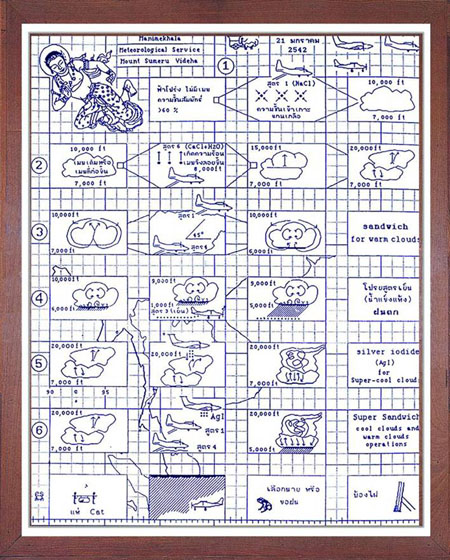 Manimekhala
Meteorological Service
Mount Sumeru Videha
21 มกราคม
2542
1
ฟ้าโปร่ง ไม่มีเมฆ
ความชื้นสัมพัทธ์
>60 %
สูตร 1 (NaCl)
ความชื้นเข้าเกาะ
แกนเกลือ
10,000 ft
7,000 ft
2
10,000 ft
เมฆเดิมหรือ
เมฆที่ก่อขึ้น
7,000 ft
สูตร 6 (CaCl+H2O)
เกิดความร้อน
เมฆจึงลอยขึ้น
8,000 ft
15,000 ft
7,000 ft
20,000 ft
7,000 ft
3
10,000ft
7,000 ft
สูตร 1
45°
สูตร 4
10,000 ft
6,000 ft
sandwich
for warm clouds
4
10,000ft
6,000ft
9,000ft
1,000ft
สูตร 3 (เย็น)
9,000 ft
5,000ft
โปรยสูตรเย็น
(น้ำแข็งแห้ง)
ฝนตก
5
20,000 ft
7,000 ft
20,000ft
20,000ft
7,000 ft
silver iodide
(AgI)
for
Super-cool cloud
90 0 35
6
20,000 ft
7,000 ft
AgI
สูตร 1
สูตร 4
20,000 ft
5,000ft
Super Sandwich
cool clouds and
warm clouds
operations
แห่ Cat
เลือกนาย หรือ
ขอฝน
บ้องไฟ